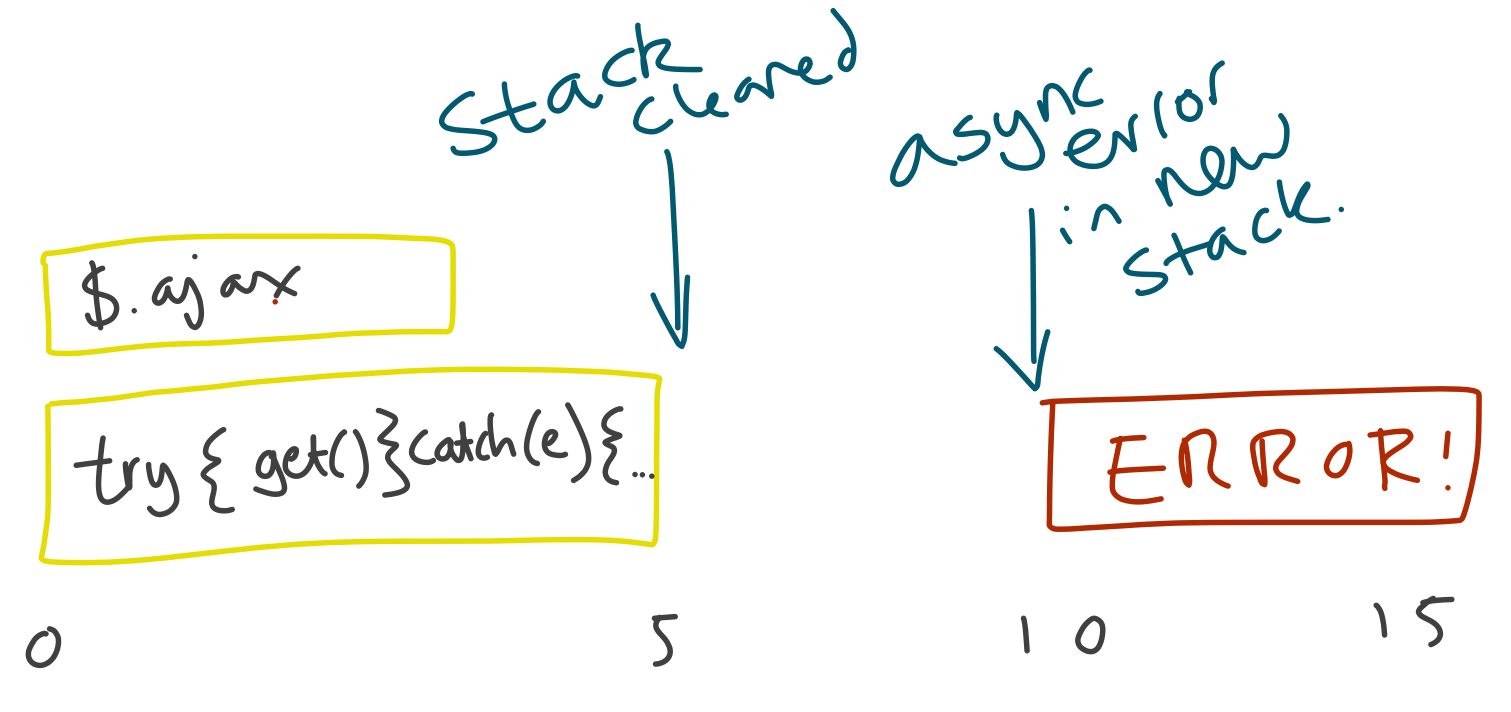 Stack
cleared
async
error
in new
stack.
$.ajax
try { get() } catch(e) { ...
ERROR!
0 5 10 15